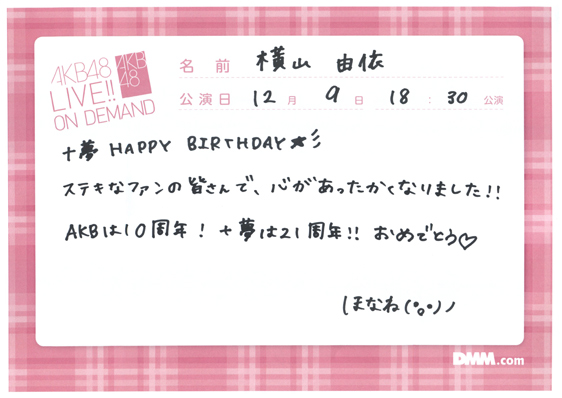 AKB48
LIVE!!
ON DEMAND
AKB
48
名前 横山 由依
公演日 12月 9日 18:30公演
十夢 HAPPY BIRTHDAY★彡
ステキなファンの皆さんで、心があったかくなりました!!
AKBは10周年! 十夢は21周年!! おめでとう♡
ほなね(°。°)ノ
DMM.com